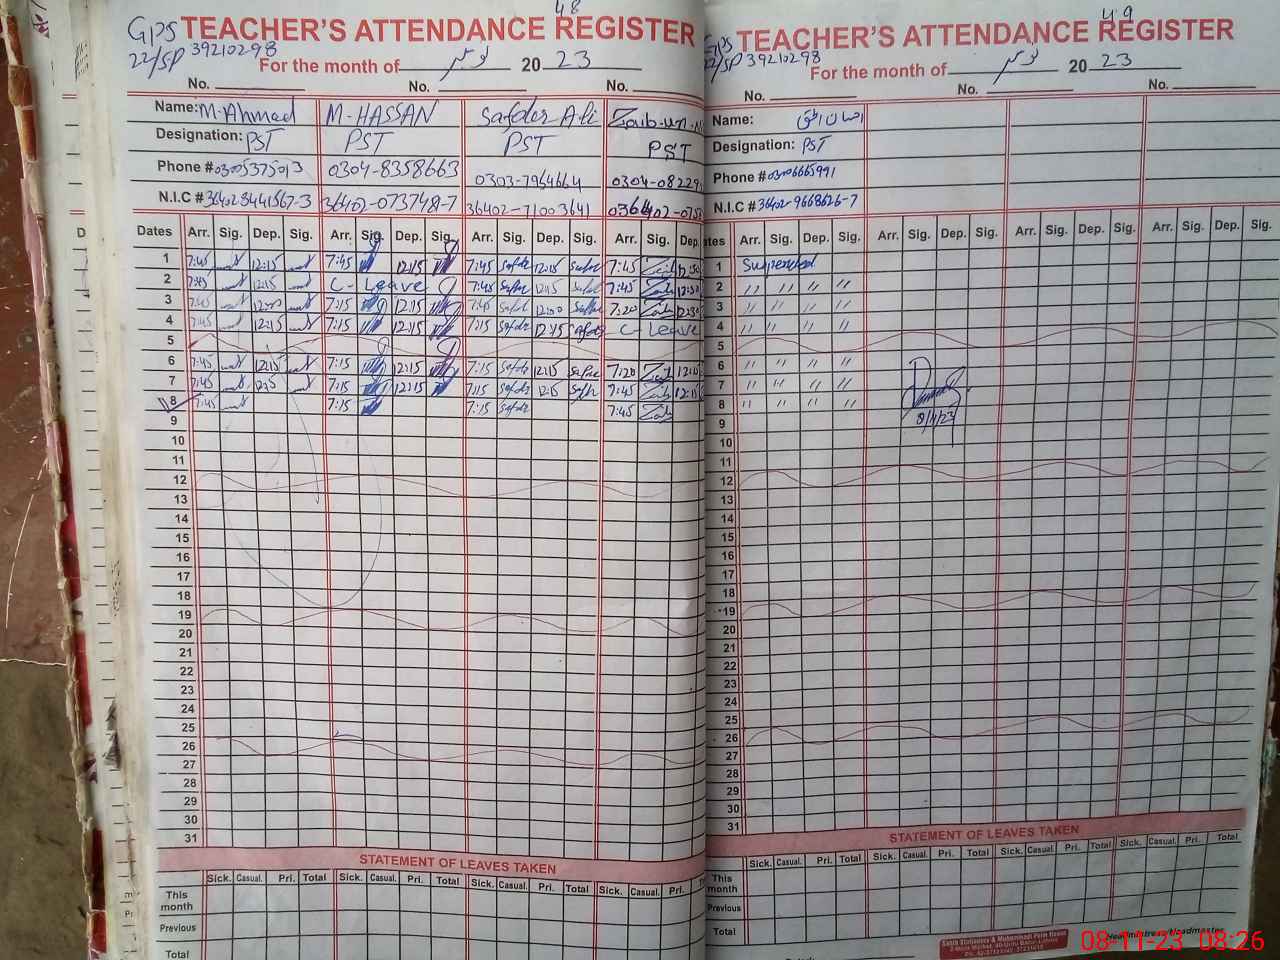 48
GPS TEACHER'S ATTENDANCE REGISTER
22/SP 39210298
For the month of نومبر 2023
No. No. No.
Name: M. Ahmad M-HASSAN Safder Ali Zaib-un-N
Designation: PST PST PST PST
Phone # 03005375013 0304-8358663 0303-7964664 0304-08229
N.I.C # 36402-8441567-3 36402-073748-7 36402-71003641 036402-075
Dates Arr. Sig. Dep. Sig. Arr. Sig. Dep. Sig. Arr. Sig. Dep. Sig. Arr. Sig. Dep.
1 7:45 12:15 7:45 12:15 7:45 Safder 12:15 Safder 7:45 Zaib 12:30
2 7:45 12:15 C-Leave 7:45 Safder 12:15 Safder 7:45 Zaib 12:30
3 7:45 12:00 7:15 12:15 7:45 Safder 12:00 Safder 7:20 Zaib 12:30
4 7:45 12:15 7:15 12:15 7:15 Safder 12:15 Safder C-Leave
5
6 7:45 12:15 7:15 12:15 7:15 Safder 12:15 Safder 7:20 Zaib 12:15
7 7:45 12:15 7:15 12:15 7:15 Safder 12:15 Safder 7:45 Zaib 12:15
8 7:45 7:15 7:15 Safder 7:45 Zaib
9
10
11
12
13
14
15
16
17
18
19
20
21
22
23
24
25
26
27
28
29
30
31
STATEMENT OF LEAVES TAKEN
Sick. Casual. Pri. Total Sick. Casual. Pri. Total Sick. Casual. Pri. Total Sick. Casual. Pri.
This month
Previous
Total
49
GPS TEACHER'S ATTENDANCE REGISTER
22/SP 39210298
For the month of نومبر 2023
No. No. No.
Name: احسان الحق
Designation: PST
Phone # 03006665991
N.I.C # 36402-9668626-7
ates Arr. Sig. Dep. Sig. Arr. Sig. Dep. Sig. Arr. Sig. Dep. Sig. Arr. Sig. Dep. Sig.
1 Suspended
2 〃 〃 〃 〃
3 〃 〃 〃 〃
4 〃 〃 〃 〃
5
6 〃 〃 〃 〃
7 〃 〃 〃 〃
8 〃 〃 〃 〃
8/11/23
9
10
11
12
13
14
15
16
17
18
19
20
21
22
23
24
25
26
27
28
29
30
31
STATEMENT OF LEAVES TAKEN
Sick. Casual. Pri. Total Sick. Casual. Pri. Total Sick. Casual. Pri. Total Sick. Casual. Pri. Total
This month
Previous
Total
Headmistress/Headmaster
08-11-23 08:26